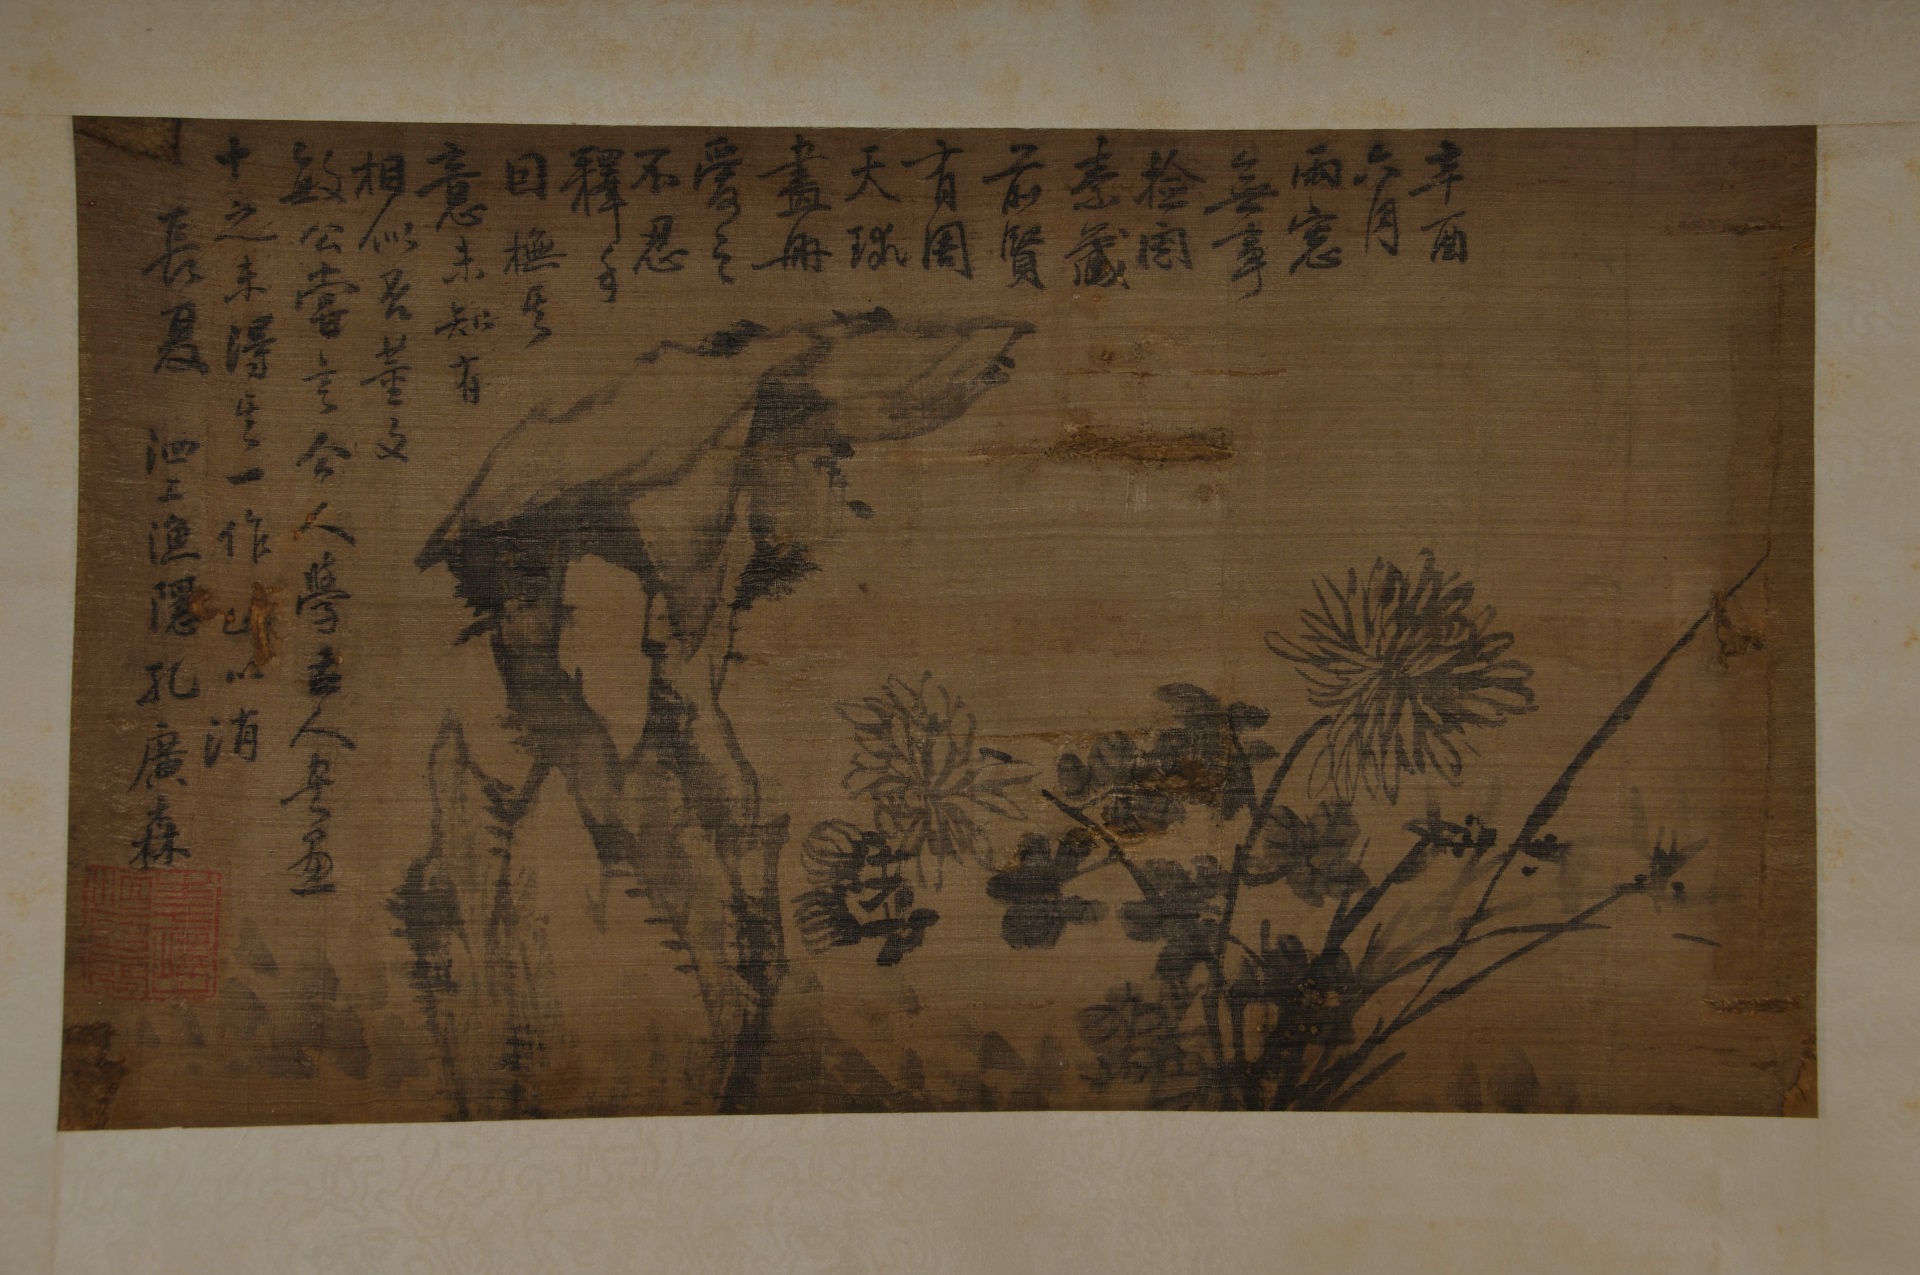 辛酉
六月
雨窓
無事
檢閱
素藏
前賢
有周
天球
畫冊
愛之
不忍
釋手
因橅其
意未知有
相似否董文
敏公嘗言今人學古人書畫
十之未得其一作此以消
長夏 泗上漁隱孔廣森